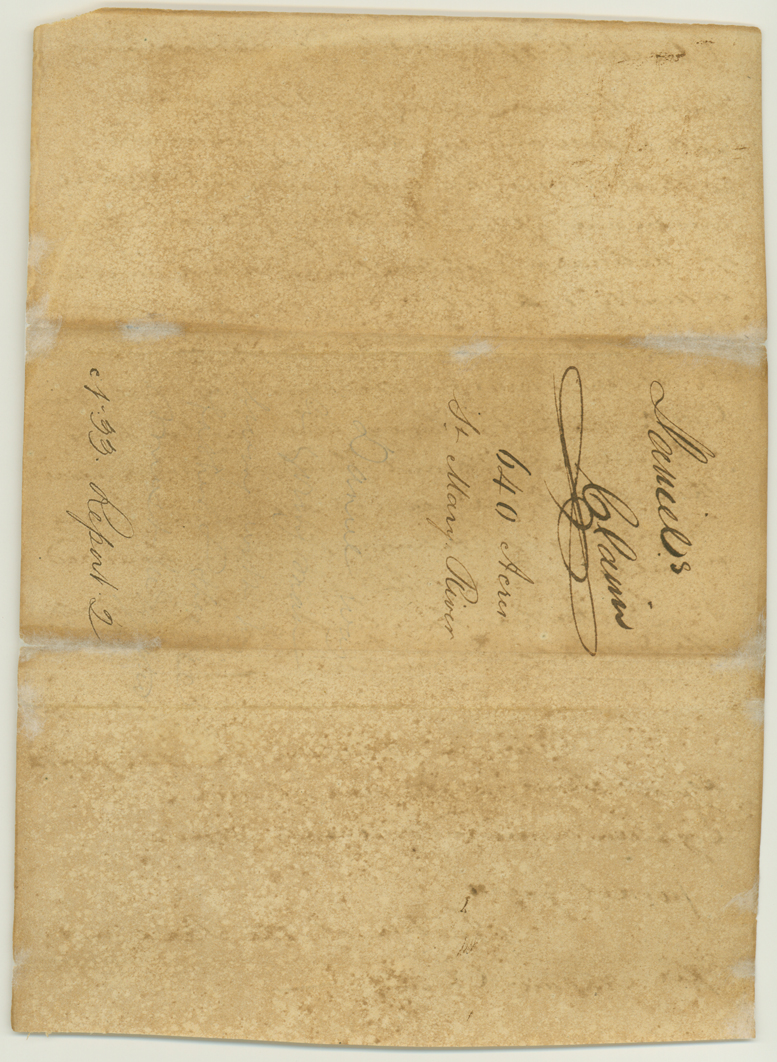 Samuel's
Claim
640 Acres
St. Mary. River
No 33. Report 2